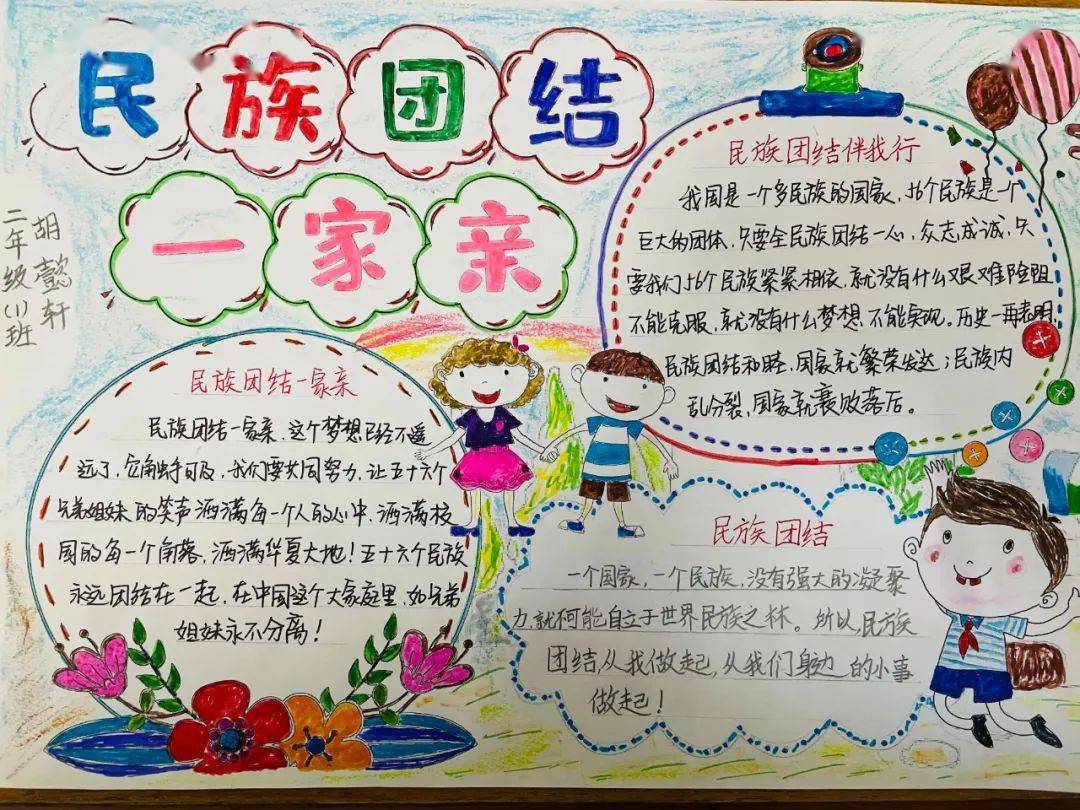 民族团结
一家亲
胡懿轩
二年级(1)班
民族团结伴我行
我国是一个多民族的国家,56个民族是一个
巨大的团体,只要全民族团结一心,众志成诚,只
要我们56个民族紧紧相依,就没有什么艰难险阻
不能克服,就没有什么梦想,不能实现。历史一再表明,
民族团结和睦,国家就繁荣发达;民族内
乱分裂,国家就衰败落后。
民族团结一家亲
民族团结一家亲,这个梦想已经不遥
远了,它触手可及,我们要共同努力,让五十六个
兄弟姐妹的笑声洒满每一个人的心中,洒满校
园的每一个角落,洒满华夏大地!五十六个民族
永远团结在一起,在中国这个大家庭里,如兄弟
姐妹永不分离!
民族团结
一个国家,一个民族,没有强大的凝聚
力,就何能自立于世界民族之林。所以,民族
团结,从我做起,从我们身边的小事
做起!